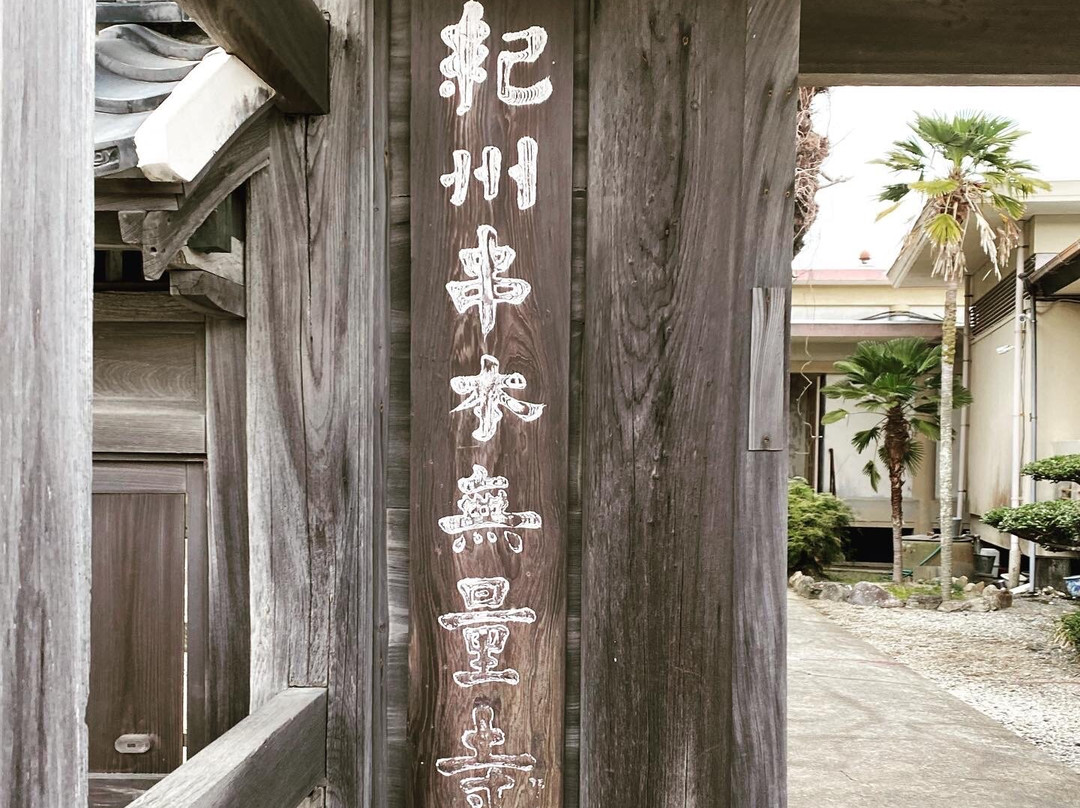 紀州串本無量寺